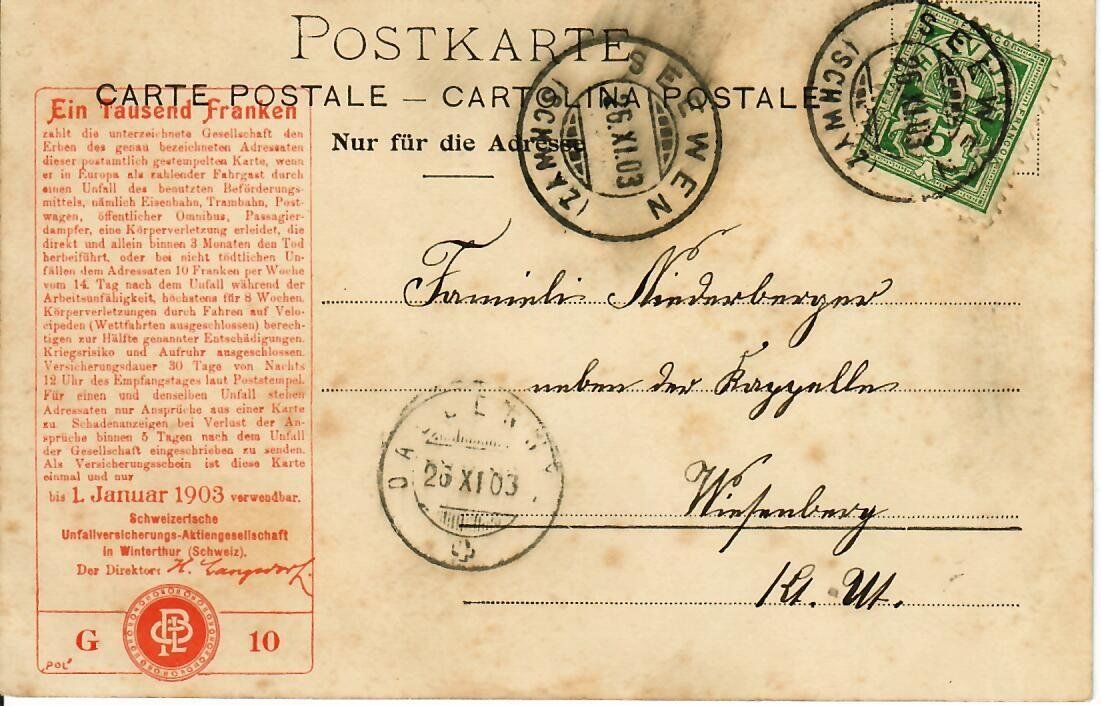 POSTKARTE
CARTE POSTALE – CARTOLINA POSTALE
Nur für die Adresse
SEEWEN
(SCHWYZ)
26.XI.03
SEEWEN
(SCHWYZ)
26.XI.03
HELVETIA
5
Ein Tausend Franken
zahlt die unterzeichnete Gesellschaft den
Erben des genau bezeichneten Adressaten
dieser postamtlich gestempelten Karte, wenn
er in Europa als zahlender Fahrgast durch
einen Unfall des benutzten Beförderungs-
mittels, nämlich Eisenbahn, Trambahn, Post-
wagen, öffentlicher Omnibus, Passagier-
dampfer, eine Körperverletzung erleidet, die
direkt und allein binnen 3 Monaten den Tod
herbeiführt, oder bei nicht tödtlichen Un-
fällen dem Adressaten 10 Franken per Woche
vom 14. Tag nach dem Unfall während der
Arbeitsunfähigkeit, höchstens für 8 Wochen.
Körperverletzungen durch Fahren auf Velo-
cipeden (Wettfahrten ausgeschlossen) berech-
tigen zur Hälfte genannter Entschädigungen.
Kriegsrisiko und Aufruhr ausgeschlossen.
Versicherungsdauer 30 Tage von Nachts
12 Uhr des Empfangstages laut Poststempel.
Für einen und denselben Unfall stehen
Adressaten nur Ansprüche aus einer Karte
zu. Schadenanzeigen bei Verlust der An-
sprüche binnen 5 Tagen nach dem Unfall
der Gesellschaft eingeschrieben zu senden.
Als Versicherungsschein ist diese Karte
einmal und nur
bis 1. Januar 1903 verwendbar.
Schweizerische
Unfallversicherungs-Aktiengesellschaft
in Winterthur (Schweiz).
Der Direktor: H. Langsdorf.
G 10
"POL"
Famieli Niederberger
neben der Kappelle
Wiesenberg
Kt. Ut.
26 XI 03